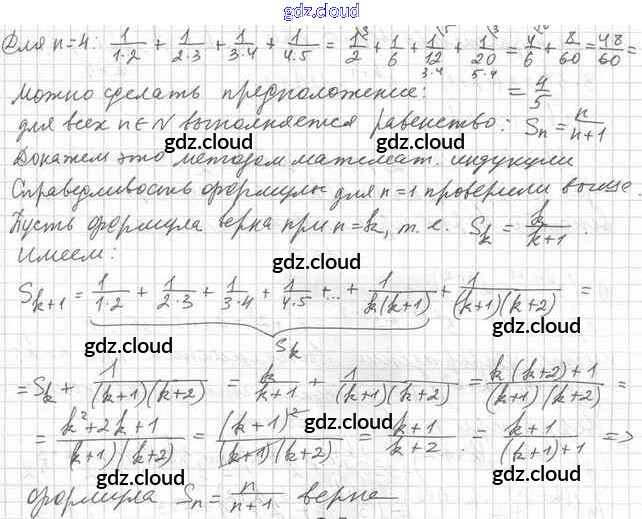 gdz.cloud
Для n=4: 1/(1·2) + 1/(2·3) + 1/(3·4) + 1/(4·5) = 1/2 + 1/6 + 1/12 + 1/20 = 4/6 + 8/60 = 48/60 =
3·4 5·4
можно сделать предположение: = 4/5
для всех n∈N выполняется равенство: Sₙ = n/(n+1)
gdz.cloud gdz.cloud
Докажем это методом математ. индукции
Справедливость формулы для n=1 проверили выше.
gdz.cloud gdz.cloud
Пусть формула верна при n=k, т.е. Sₖ = k/(k+1).
Имеем:
gdz.cloud
Sₖ₊₁ = 1/(1·2) + 1/(2·3) + 1/(3·4) + 1/(4·5) + ... + 1/(k(k+1)) + 1/((k+1)(k+2)) =
gdz.cloud
gdz.cloud Sₖ gdz.cloud
= Sₖ + 1/((k+1)(k+2)) = k/(k+1) + 1/((k+1)(k+2)) = (k(k+2)+1)/((k+1)(k+2)) =
= (k²+2k+1)/((k+1)(k+2)) = (k+1)²/((k+1)(k+2)) = (k+1)/(k+2) = (k+1)/((k+1)+1) =>
gdz.cloud gdz.cloud
gdz.cloud gdz.cloud
формула Sₙ = n/(n+1) верна